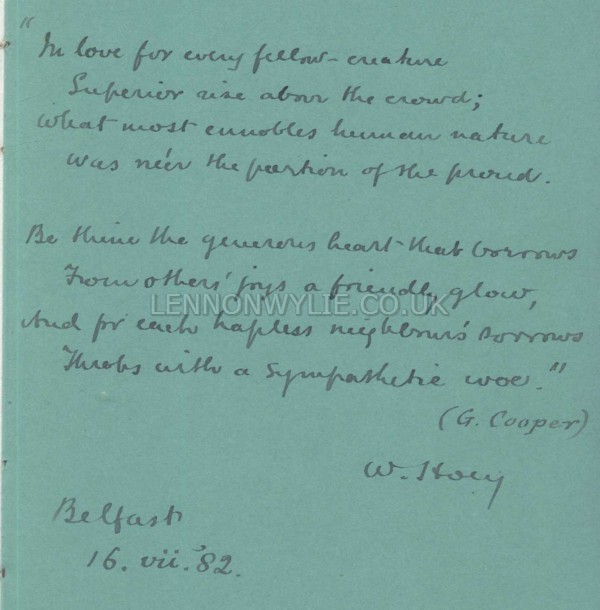 "In love for every fellow-creature
Superior rise above the crowd;
What most ennobles human nature
Was ne'er the portion of the proud.
Be thine the generous heart that borrows
From others' joys a friendly glow,
And for each hapless neighbour's sorrows
Throbs with a sympathetic woe."
(G. Cooper)
W. Hoey
Belfast
16. vii. '82.
LENNONWYLIE.CO.UK